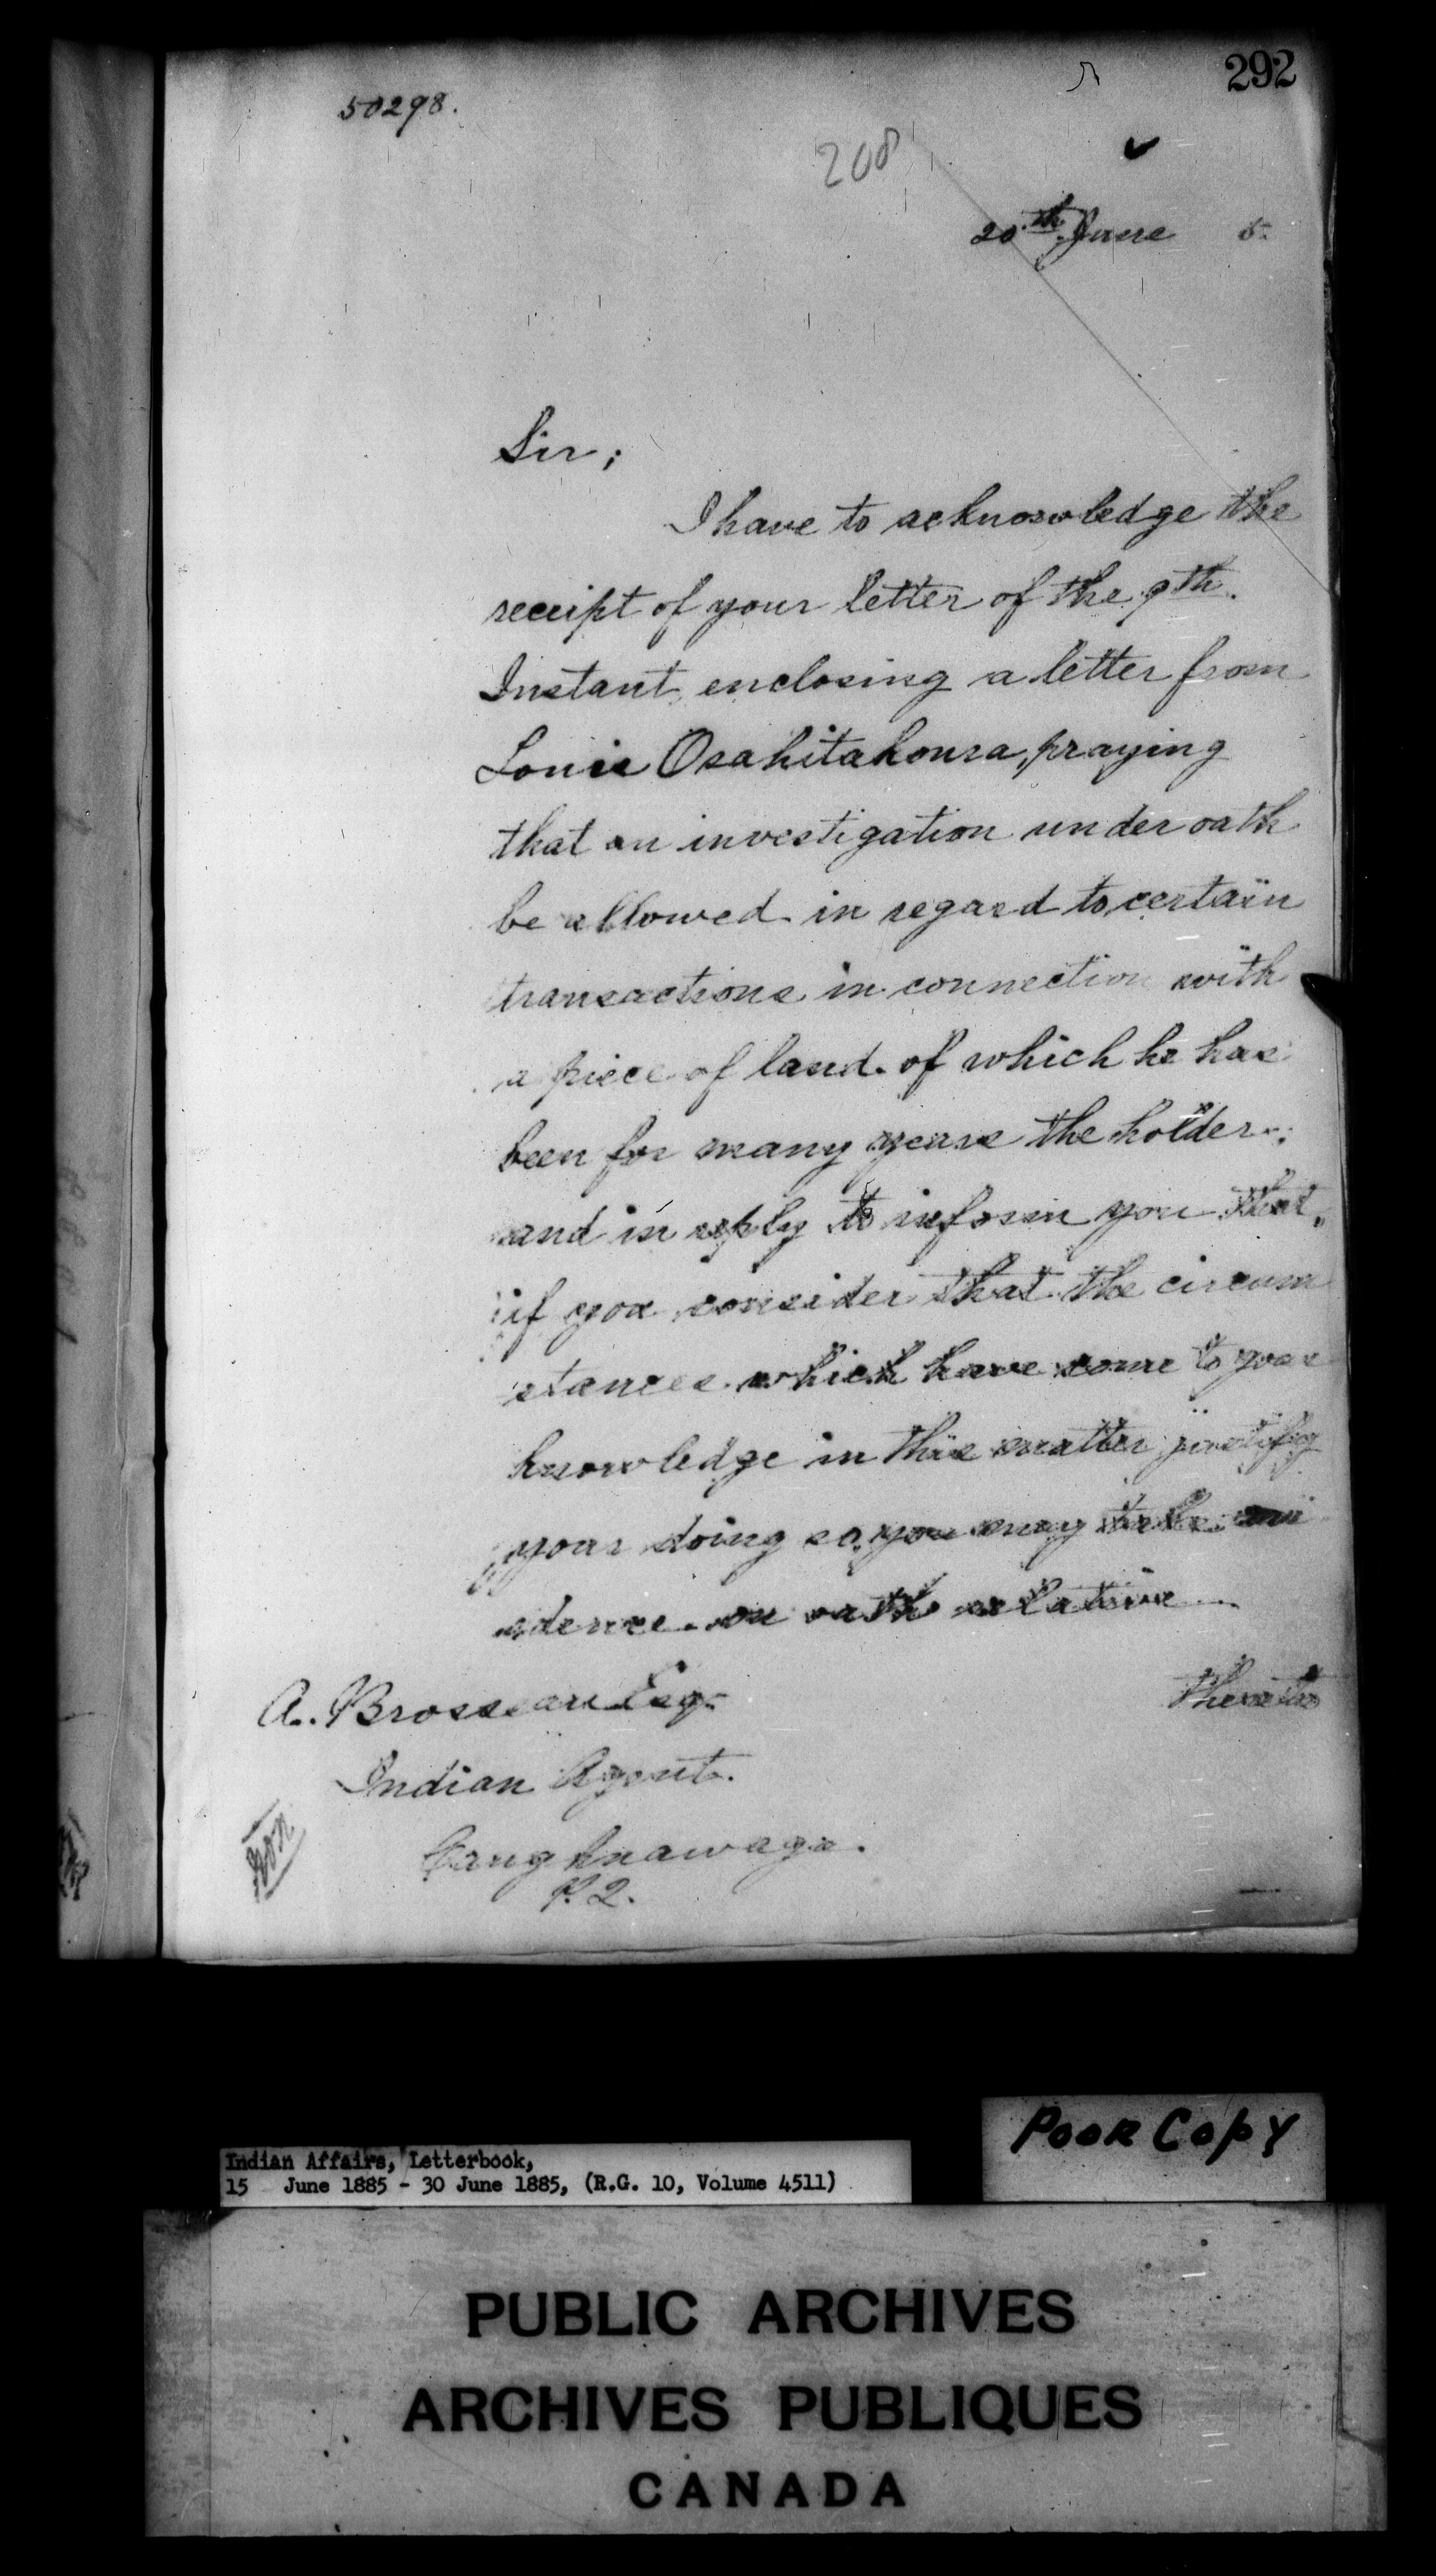 292
50298.
208
20th June 5
Sir;
I have to acknowledge the
receipt of your letter of the 9th.
Instant enclosing a letter from
Louis Osahitakonra, praying
that an investigation under oath
be allowed in regard to certain
transactions in connection with
a piece of land of which he has
been for many years the holder;
and in reply to inform you that,
if you consider that the circum
stances which have come to your
knowledge in this matter justify
your doing so, you may take evi
dence on oath relative
thereto
A. Brosseau Esq.
Indian Agent.
Caughnawaga.
P.Q.
Poor Copy
Indian Affairs, Letterbook,
15 June 1885 - 30 June 1885, (R.G. 10, Volume 4511)
PUBLIC ARCHIVES
ARCHIVES PUBLIQUES
CANADA